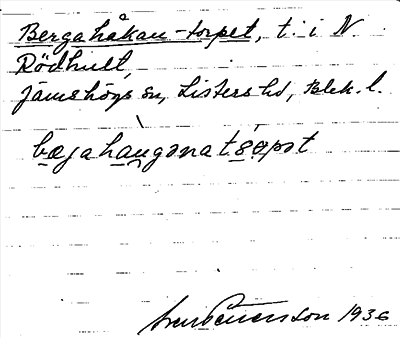 Bergahåkan-torpet, t. i N.
Rödhult,
Jämshögs sn, Listers hd, Blek. l.
bæjahaugənatsɵpət
Sven Benson 1936